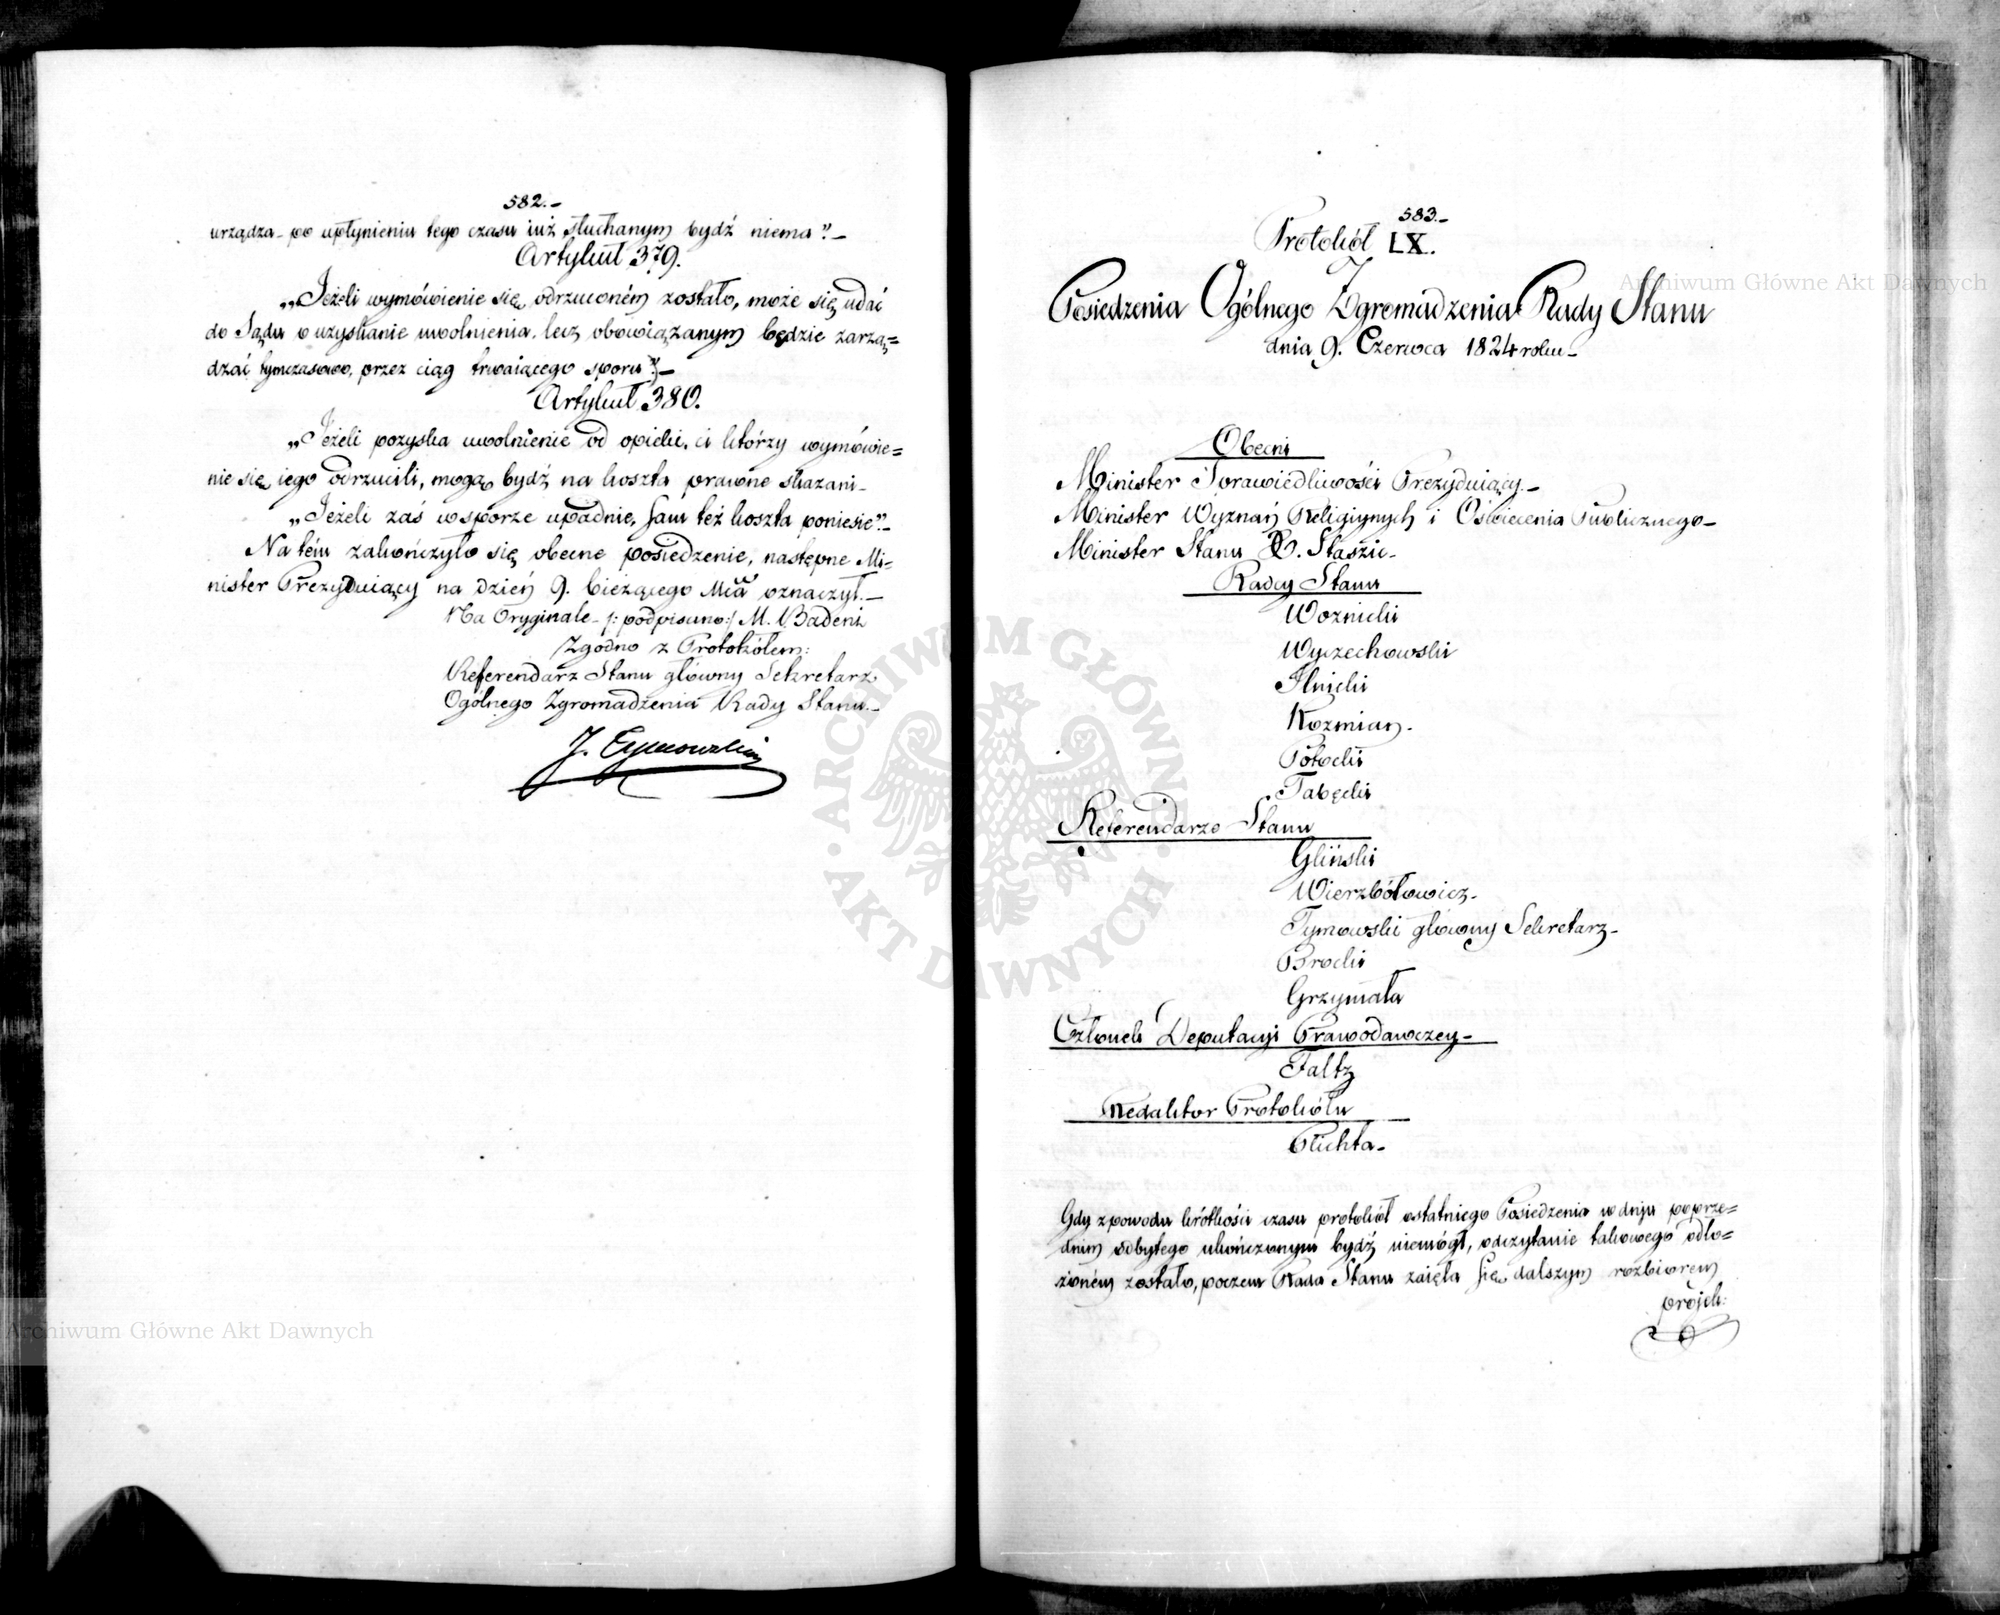 582.-
urządza- po upłynieniu tego czasu iuż słuchanym bydź niema".-
Artykuł 379.
„Jeżeli wymówienie się odrzuconém zostało, może się udać
do Sądu o uzyskanie uwolnienia, lecz obowiązanym będzie zarzą=
dzać tymczasowo, przez ciąg trwaiącego sporu".-
Artykuł 380.
„Jeżeli pozyska uwolnienie od opieki, ci którzy wymówie=
nie się iego odrzucili, mogą bydź na koszta prawne skazani-
„Jeżeli zaś w sporze upadnie, sam też koszta poniesie".-
Na tém zakończyło się obecne posiedzenie, następne Mi-
nister Prezyduiący na dzień 9. bieżącego Mca oznaczył.-
Na Oryginale -/: podpisano:/ M. Badeni
Zgodno z Protokółem:
Referendarz Stanu główny Sekretarz
Ogólnego Zgromadzenia Rady Stanu.-
J. Tymowski
583.-
Protokół LX.
Posiedzenia Ogólnego Zgromadzenia Rady Stanu
dnia 9. Czerwca 1824 roku-
Obecni
Minister Sprawiedliwości Prezyduiący.-
Minister Wyznań Religiynych i Oświecenia Publicznego-
Minister Stanu X. Staszic-
Radcy Stanu
Woznicki
Wyczechowski
Ilnicki
Kozmian.
Potocki
Tabęcki
Referendarze Stanu
Gliński
Wierzbółowicz-
Tymowski główny Sekretarz-
Brocki
Grzymała
Członek Deputacyi Prawodawczey-
Faltz
Redaktor Protokółu
Plichta-
Gdy z powodu krótkości czasu protokół ostatniego Posiedzenia w dniu poprze=
dnim odbytego ukończonym bydź niemógł, odczytanie takowego odło=
żoném zostało, poczem Rada Stanu zaięła się dalszym rozbiorem
projek:
Archiwum Główne Akt Dawnych
Archiwum Główne Akt Dawnych
ARCHIWUM GŁÓWNE · AKT DAWNYCH ·